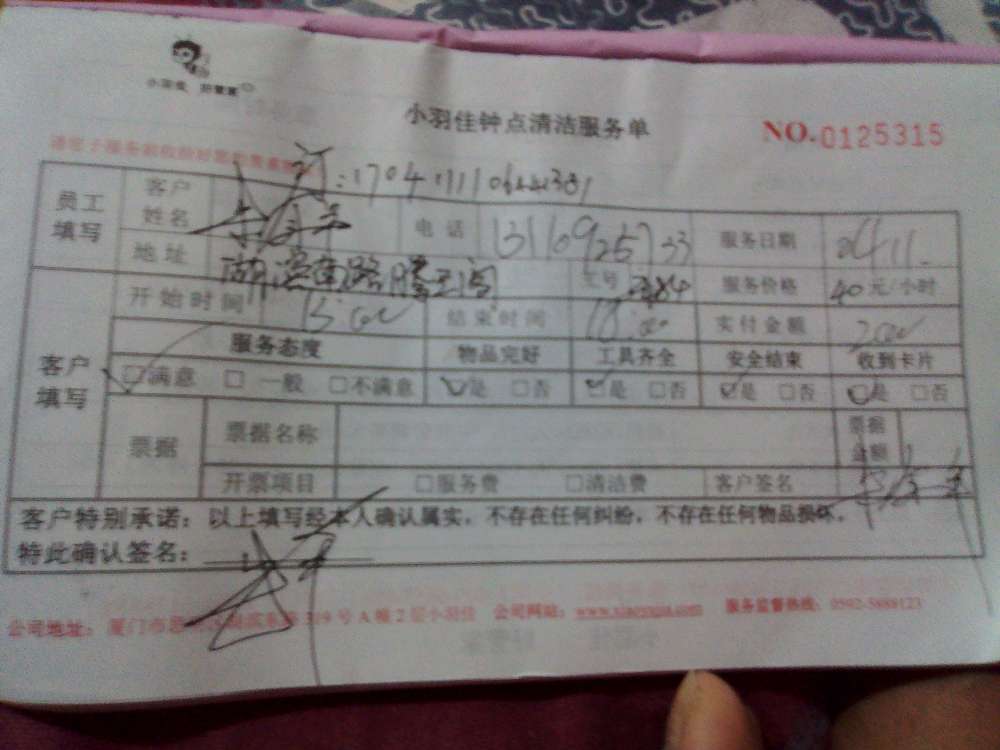 小羽佳 好管家
小羽佳钟点清洁服务单
NO.0125315
员工填写
客户姓名
电话 13110925733 服务日期
地址 湖滨南路腾王阁 工号 服务价格 40元/小时
客户填写
开始时间 15:00 结束时间 18:00 实付金额
服务态度 物品完好 工具齐全 安全结束 收到卡片
□满意 □一般 □不满意 □是 □否 □是 □否 □是 □否 □是 □否
票据 票据名称 票据金额
开票项目 □服务费 □清洁费 客户签名
客户特别承诺：以上填写经本人确认属实，不存在任何纠纷，不存在任何物品损坏。
特此确认签名：
公司地址：厦门市 319号A幢2层小羽佳 公司网站： 服务监督热线：0592-5888123